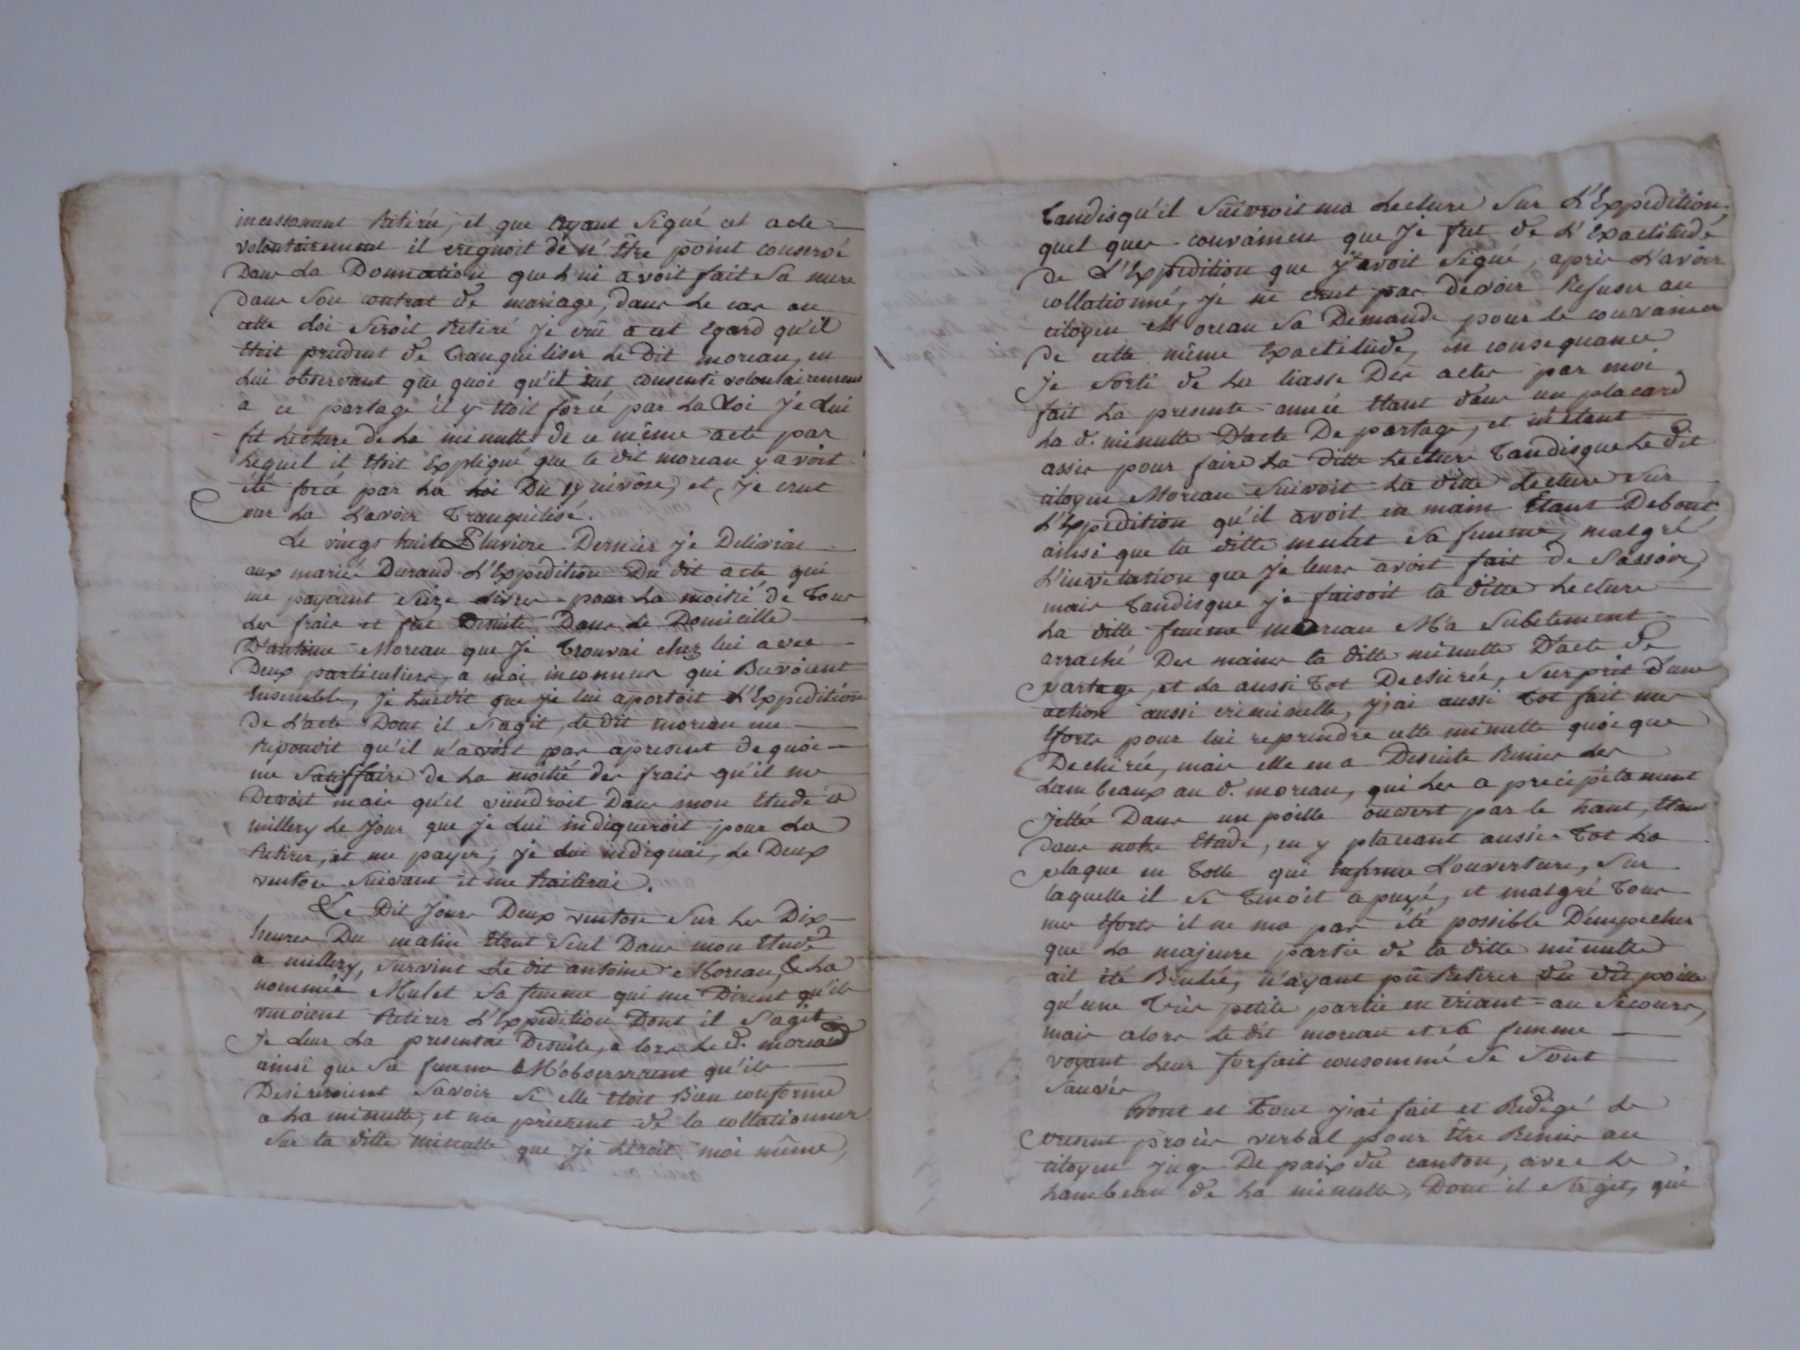 incessament Retirée, et que ayant signé cet acte
volontairement il creignoit de n'être point conservé
Dans La Donnation que lui avoit fait sa mere
dans son contrat de mariage, dans le cas ou
cette Loi seroit Retiré je crû a cet Egard qu'il
Etoit prudent de tranquiliser Le Dit moreau, en
Lui observant que quoi qu'il eut consenti volontairement
a ce partage il y Etoit forcé par La Loi je Lui
fit Lecture de La minutte de ce même acte par
Lequel il Etoit Expliqué que le dit moreau y avoit
été forcé par La Loi Du 17 nivôse, et je crut
par La L'avoir Tranquilisé.
Le vingt huit Pluviose Dernier je Delivrai
aux mariés Durand L'Expedition Du dit acte qui
me payerent seize Livres pour La moitié de Tous
Les frais et fut Ensuite Dans Le Domicille
D'antoine Moreau que je Trouvai chez lui avec
Deux particuliers, a moi inconnus qui Buvoient
Ensemble, je lui dit que je lui aportoit L'Expedition
de L'acte Dont il s'agit, le dit moreau me
Repondit qu'il n'avoit pas apresent de quoi
me Satisffaire de La moitié des frais qu'il me
Devoit mais qu'il viendroit Dans mon Etude a
millery Le Jour que je Lui indiqueroit pour La
Retirer, et me payer, je Lui indiquai, Le Deux
ventose suivant et me Retirai.
Le Dit Jour Deux ventose sur Les Dix
heures Du matin Etant seul Dans mon Etude
a millery, survint Le dit antoine Moreau, & La
nommée Mulet sa femme qui me Dirent qu'ils
venoient Retirer L'Expedition Dont il s'agit
je Leur La presentai Desuite, alors Le d. moreau
ainsi que sa femme M'observerent qu'ils
Desireroient savoir si elle Etoit Bien conforme
a La minutte, et me prierent de la collationner
sur la ditte minutte que je Liroit moi même,
Tandisqu'il suivroit ma Lecture sur L'Expedition,
quel que convaincu que je fut de L'Exactitude
de L'Expedition que j'avoit signé, après L'avoir
collationné, je ne crut pas devoir Refuser au
citoyen Moreau sa Demande pour le convaincre
de cette même Exactitude, en consequance
je sorti de La liasse Des actes par moi
fait La presente année Etant dans un placard
La d. minutte D'acte De partage, et m'etant
assis pour faire La ditte Lecture Tandisque Le dit
citoyen Moreau suivoit La ditte Lecture sur
L'Expedition qu'il avoit en main Etant Debout
ainsi que la ditte mulet sa femme, malgré
L'invitation que je leurs avoit fait de s'assoir,
mais Tandisque je faisoit la ditte Lecture
La ditte femme moreau M'a Subitement
arraché Des mains la ditte minutte D'acte de
partage, et La aussi Tot Dechirée, Surprit d'une
action aussi criminelle, j'ai aussi Tot fait mes
Efforts pour lui reprendre cette minutte quoi que
Dechirée, mais elle en a Desuite Remis Les
Lambeaux au d. moreau, qui Les a precipitament
jettée Dans un poille ouvert par le haut, Etant
dans notre Etude, en y placant aussi Tot La
plaque en Tolle qui enferme L'ouverture, sur
laquelle il se Tenoit apuyé, et malgré Tous
mes Efforts il ne ma pas été possible D'empecher
que La majeure partie de la ditte minutte
ait été Brulée, n'ayant pû Retirer du dit poille
qu'une Très petite partie en criant au Secours,
mais alors le dit moreau et sa femme
voyant Leur forfait consommé se sont
sauvés
Dont et Tout j'ai fait et Redigé Le
present procès verbal pour être Remis au
citoyen juge De paix du canton, avec Le
Lambeau de La minutte, Dont il s'agit, qui